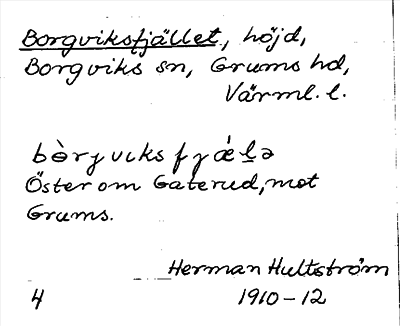 Borgviksfjället, höjd,
Borgviks sn, Grums hd,
Värml. l.
bòrgviksfjǽḷə
Öster om Gaterud, mot
Grums.
Herman Hultström
4 1910-12